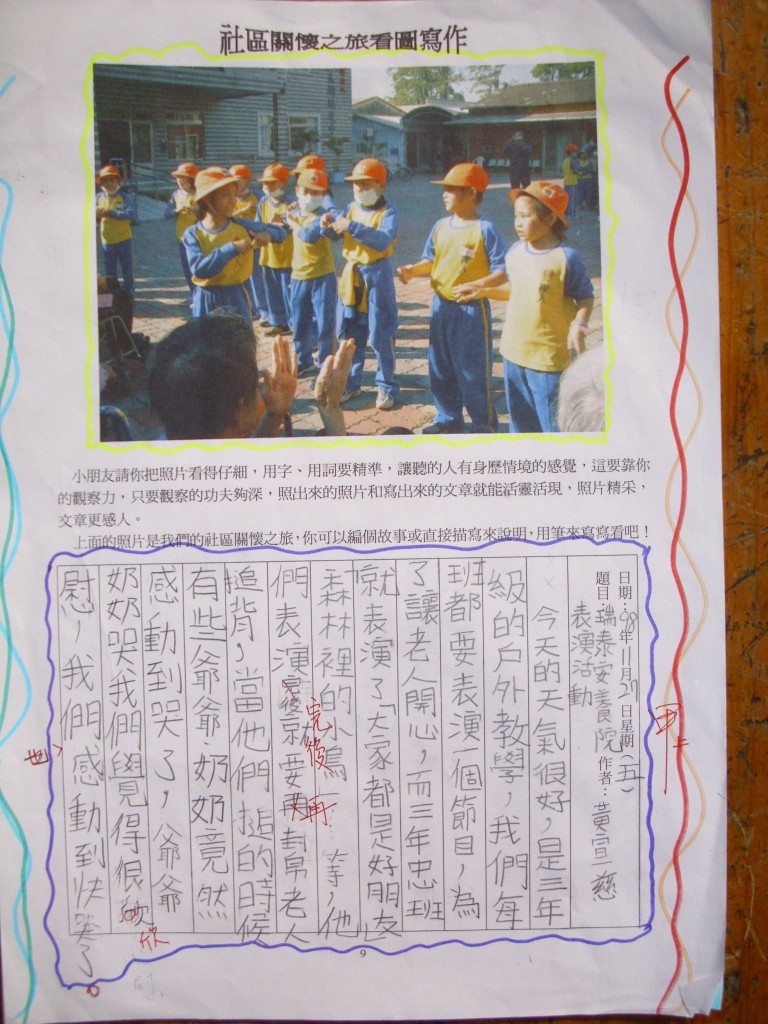 社區關懷之旅看圖寫作
小朋友請你把照片看得仔細，用字、用詞要精準，讓聽的人有身歷情境的感覺，這要靠你
的觀察力，只要觀察的功夫夠深，照出來的照片和寫出來的文章就能活靈活現，照片精采，
文章更感人。
上面的照片是我們的社區關懷之旅，你可以編個故事或直接描寫來說明，用筆來寫寫看吧！
日期：98年11月27日星期（五）
題目：瑞泰安養院 作者：黃宣慈
表演活動
今天的天氣很好，是三年
級的戶外教學，我們每
班都要表演一個節目，為
了讓老人開心，而三年忠班
就表演了「大家都是好朋友」
森林裡的小鳥…等，他
們表演完後就要再幫老人
搥背，當他們搥的時候
有些爺爺、奶奶竟然
感動到哭了，爺爺
奶奶哭我們覺得很欣
慰，我們感動到快哭了
完後
再
欣
也
甲
9